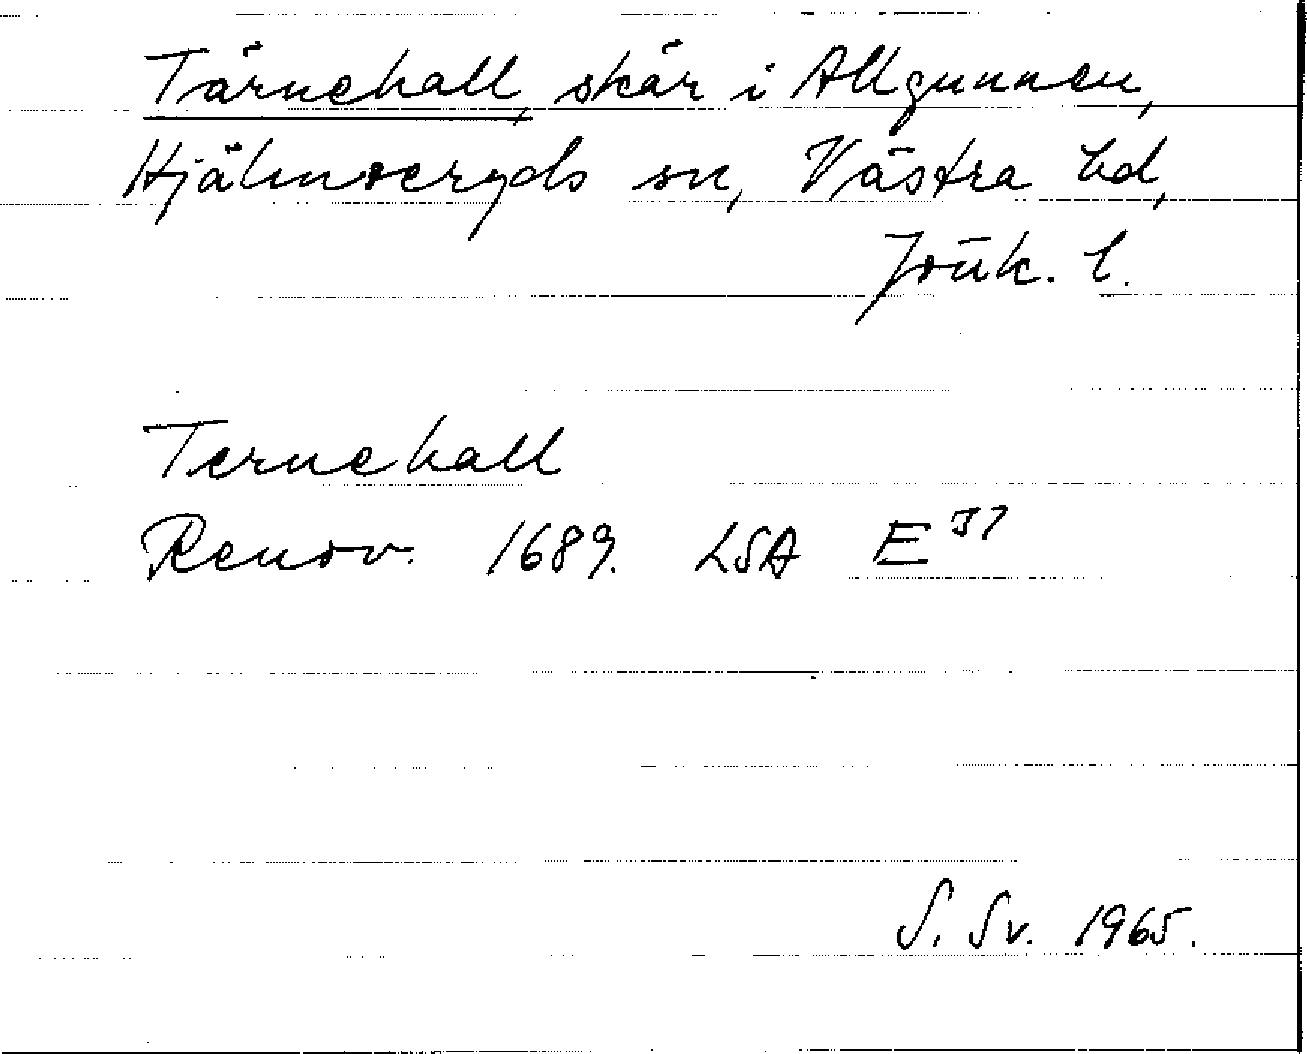 Tärnehall, skär i Allgunnen,
Hjälmseryds sn, Västra hd,
Jönk. l.
Ternehall
Renov. 1689. LSA E 37
S. Sv. 1965.